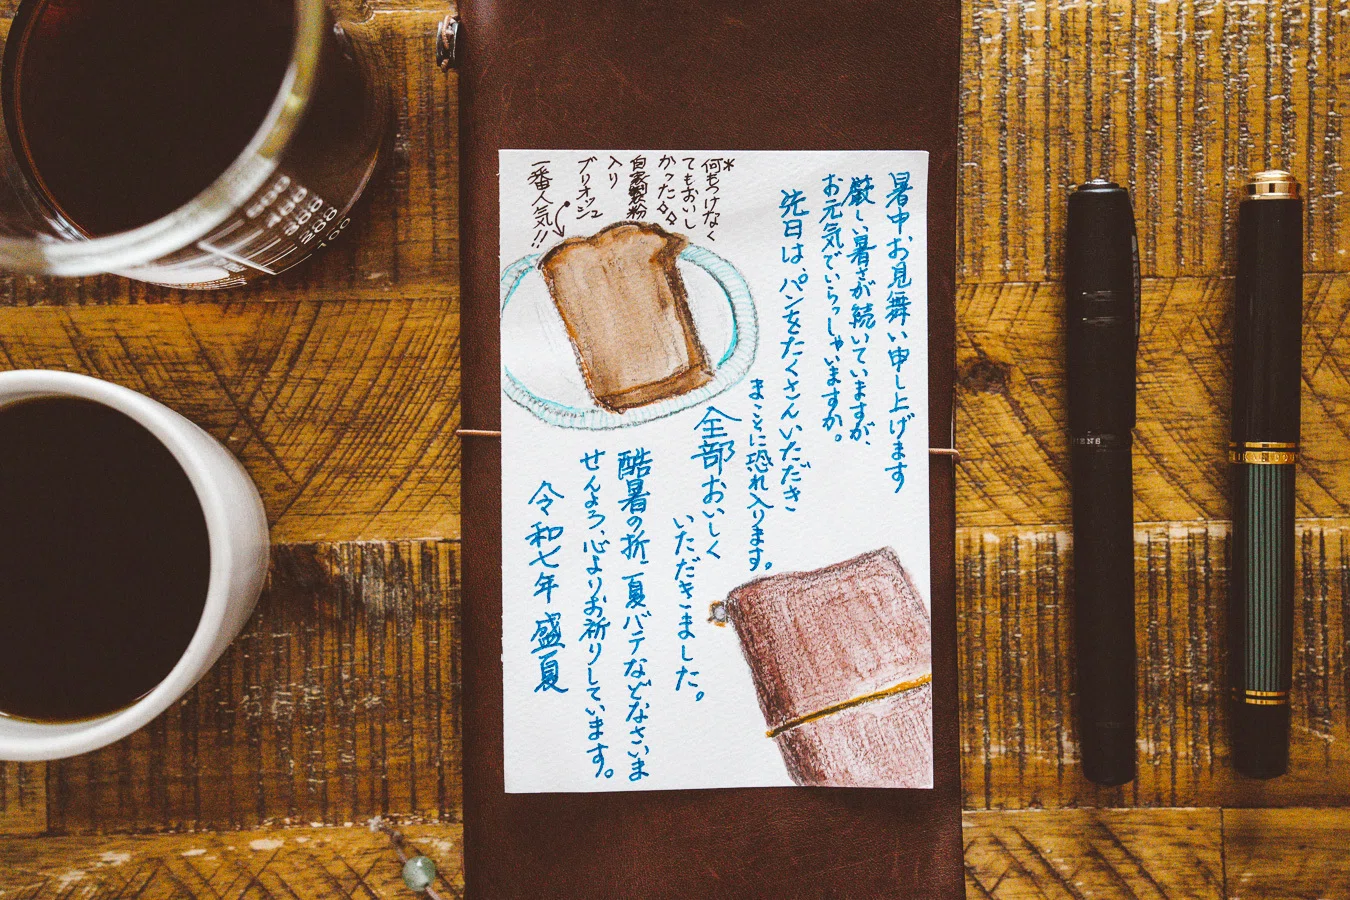 暑中お見舞い申し上げます
厳しい暑さが続いていますが、
お元気でいらっしゃいますか。
先日はパンをたくさんいただき
まことに恐れ入ります。
全部おいしく
いただきました。
酷暑の折、夏バテなどなさいま
せんよう、心よりお祈りしています。
令和七年 盛夏
*何もつけなく
てもおいし
かった
自家製粉
入り
ブリオッシュ
一番人気!!
500
400
300
200
100